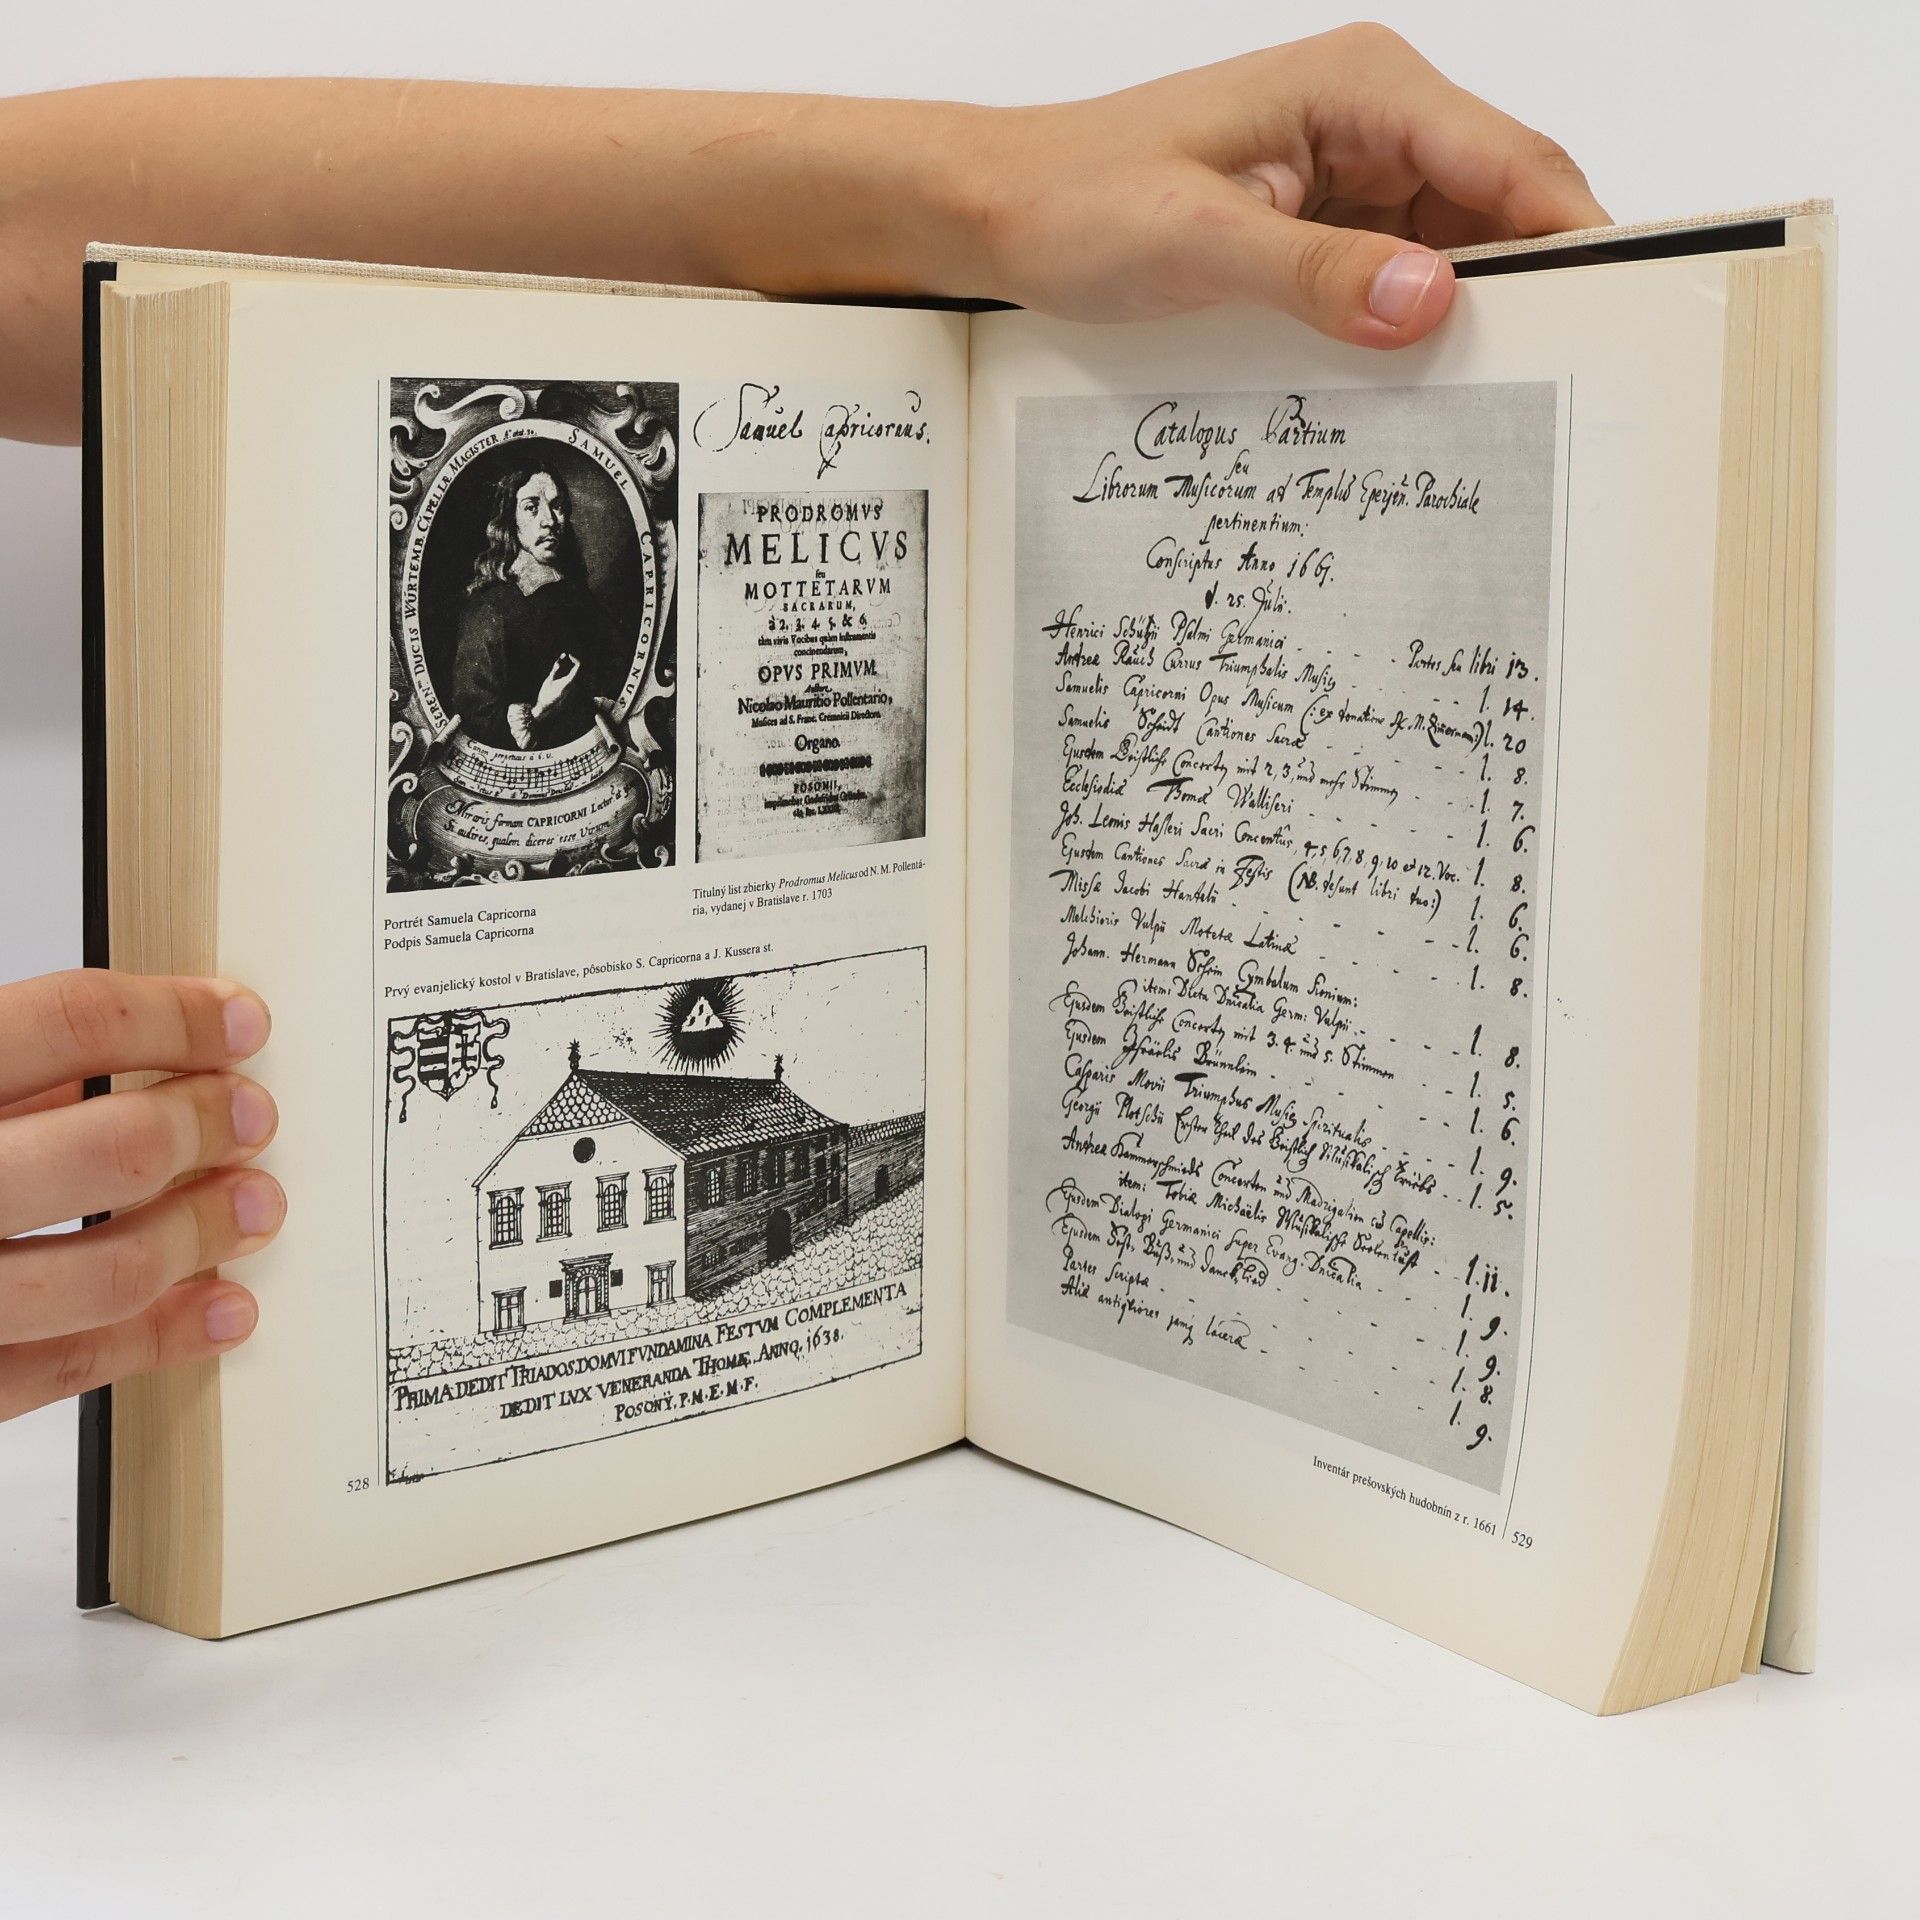 SEREN.mi DUCIS WÜRTEMB. CAPELLÆ MAGISTER Æ SAMUEL CAPRICORNUS
Canon perpetuus à 6. V.
Miraris formam CAPRICORNI Lector
Si audires, qualem diceres esse Virum
Samuel Capricornus.
PRODROMVS
MELICVS
seu
MOTTETARVM
SACRARUM,
à 2. 3. 4. 5. & 6.
tàm vivis Vocibus quàm Instrumentis
concinendarum,
OPVS PRIMVM
Nicolao Mauritio Pollentario,
Musices ad S. Franc. Cremnicii Directore.
Organo.
POSONII,
Portrét Samuela Capricorna
Podpis Samuela Capricorna
Titulný list zbierky Prodromus Melicus od N. M. Pollentá-
ria, vydanej v Bratislave r. 1703
Prvý evanjelický kostol v Bratislave, pôsobisko S. Capricorna a J. Kussera st.
PRIMA DEDIT TRIADOS DOMVI FVNDAMINA FESTVM COMPLEMENTA
DEDIT LVX VENERANDA THOMÆ, ANNO, 1638.
POSONŸ, P. M. E. M. F.
528
Catalogus Partium
seu
Librorum Musicorum ad Templū Eperjen. Parochiale
pertinentium:
Conscriptus Anno 1661.
d. 25. Julii.
Henrici Schützii Psalmi Germanici - - - Partes seu libri 13.
Andreæ Rauch Currus Triumphalis Musicę - - l. 14.
Samuelis Capricorni Opus Musicum (: ex donatione M. Zimmermann :) l. 20
Samuelis Scheidt Cantiones Sacræ - - - l. 8.
Ejusdem Geistliche Concerten mit 2, 3, und mehr Stimmen - - l. 7.
Ecclesiodiæ Thomæ Walliseri - - - - l. 6.
Joh. Leonis Hasleri Sacri Concentus, 4, 5, 6, 7, 8, 9, 10 et 12. Voc. l. 8.
Ejusdem Cantiones Sacræ in Festis (NB. desunt libri duo :) l. 6.
Missæ Jacobi Handelii - - - - l. 6.
Melchioris Vulpii Motetæ Latinæ - - - l. 8.
Johann. Herman Schein Cymbalum Sionium:
item: Dicta Dnicalia Germ: Vulpii - - - l. 8.
Ejusdem Geistliche Concerten mit 3. 4. und 5. Stimmen - - l. 5.
Ejusdem Israelis Brünnlein - - - - l. 6.
Casparis Movii Triumphus Musicę Spiritualis - - - l. 9.
Georgii Plotschii Ersten Theil des Geistlich Musikalisch - - l. 5.
Andreæ Hammerschmieds Concerten und Madrigalien cū Capellis:
item: Tobiæ Michaëlis Musikalische Seelenlust - - l. 11.
Ejusdem Dialogi Germanici super Evang. Dnicalia - - l. 9.
Ejusdem Fest, Buß, und Dancklied - - - l. 9.
Partes scriptæ - - - - l. 8.
Aliæ antiquiores jamq laceræ - - - l. 9.
Inventár prešovských hudobnín z r. 1661
529